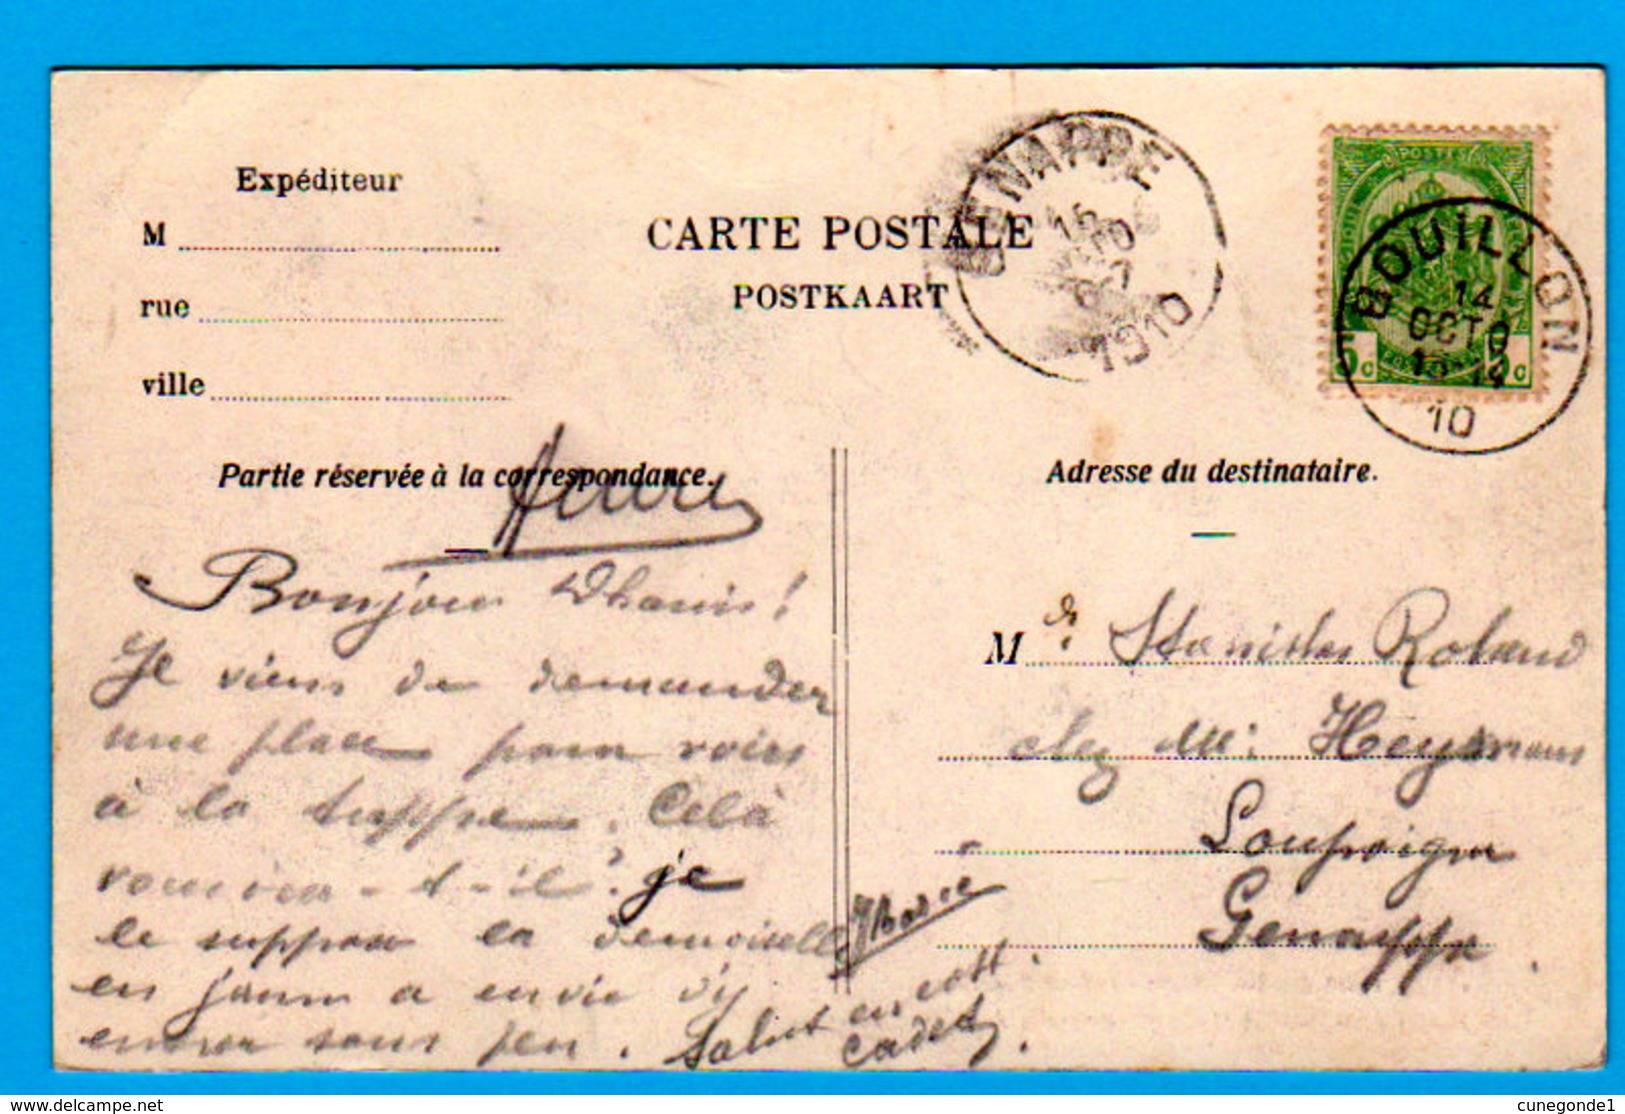 Expéditeur
M
rue
ville
CARTE POSTALE
POSTKAART
GENAPPE
15
1910
POSTES
BOUILLON
14
OCTO
10
5 c
5 c
Partie réservée à la correspondance.
Adresse du destinataire.
Bonjour
Je viens de demander
une place pour
à la Celà
t-il? je
le suppose la demoiselle
en jaune a envie d'y
entrer sous peu. Salut
en
cadet.
M Stanislas Roland
chez Mr: Heymans
Loupoigne
Genappe.
www.delcampe.net
cunegonde1